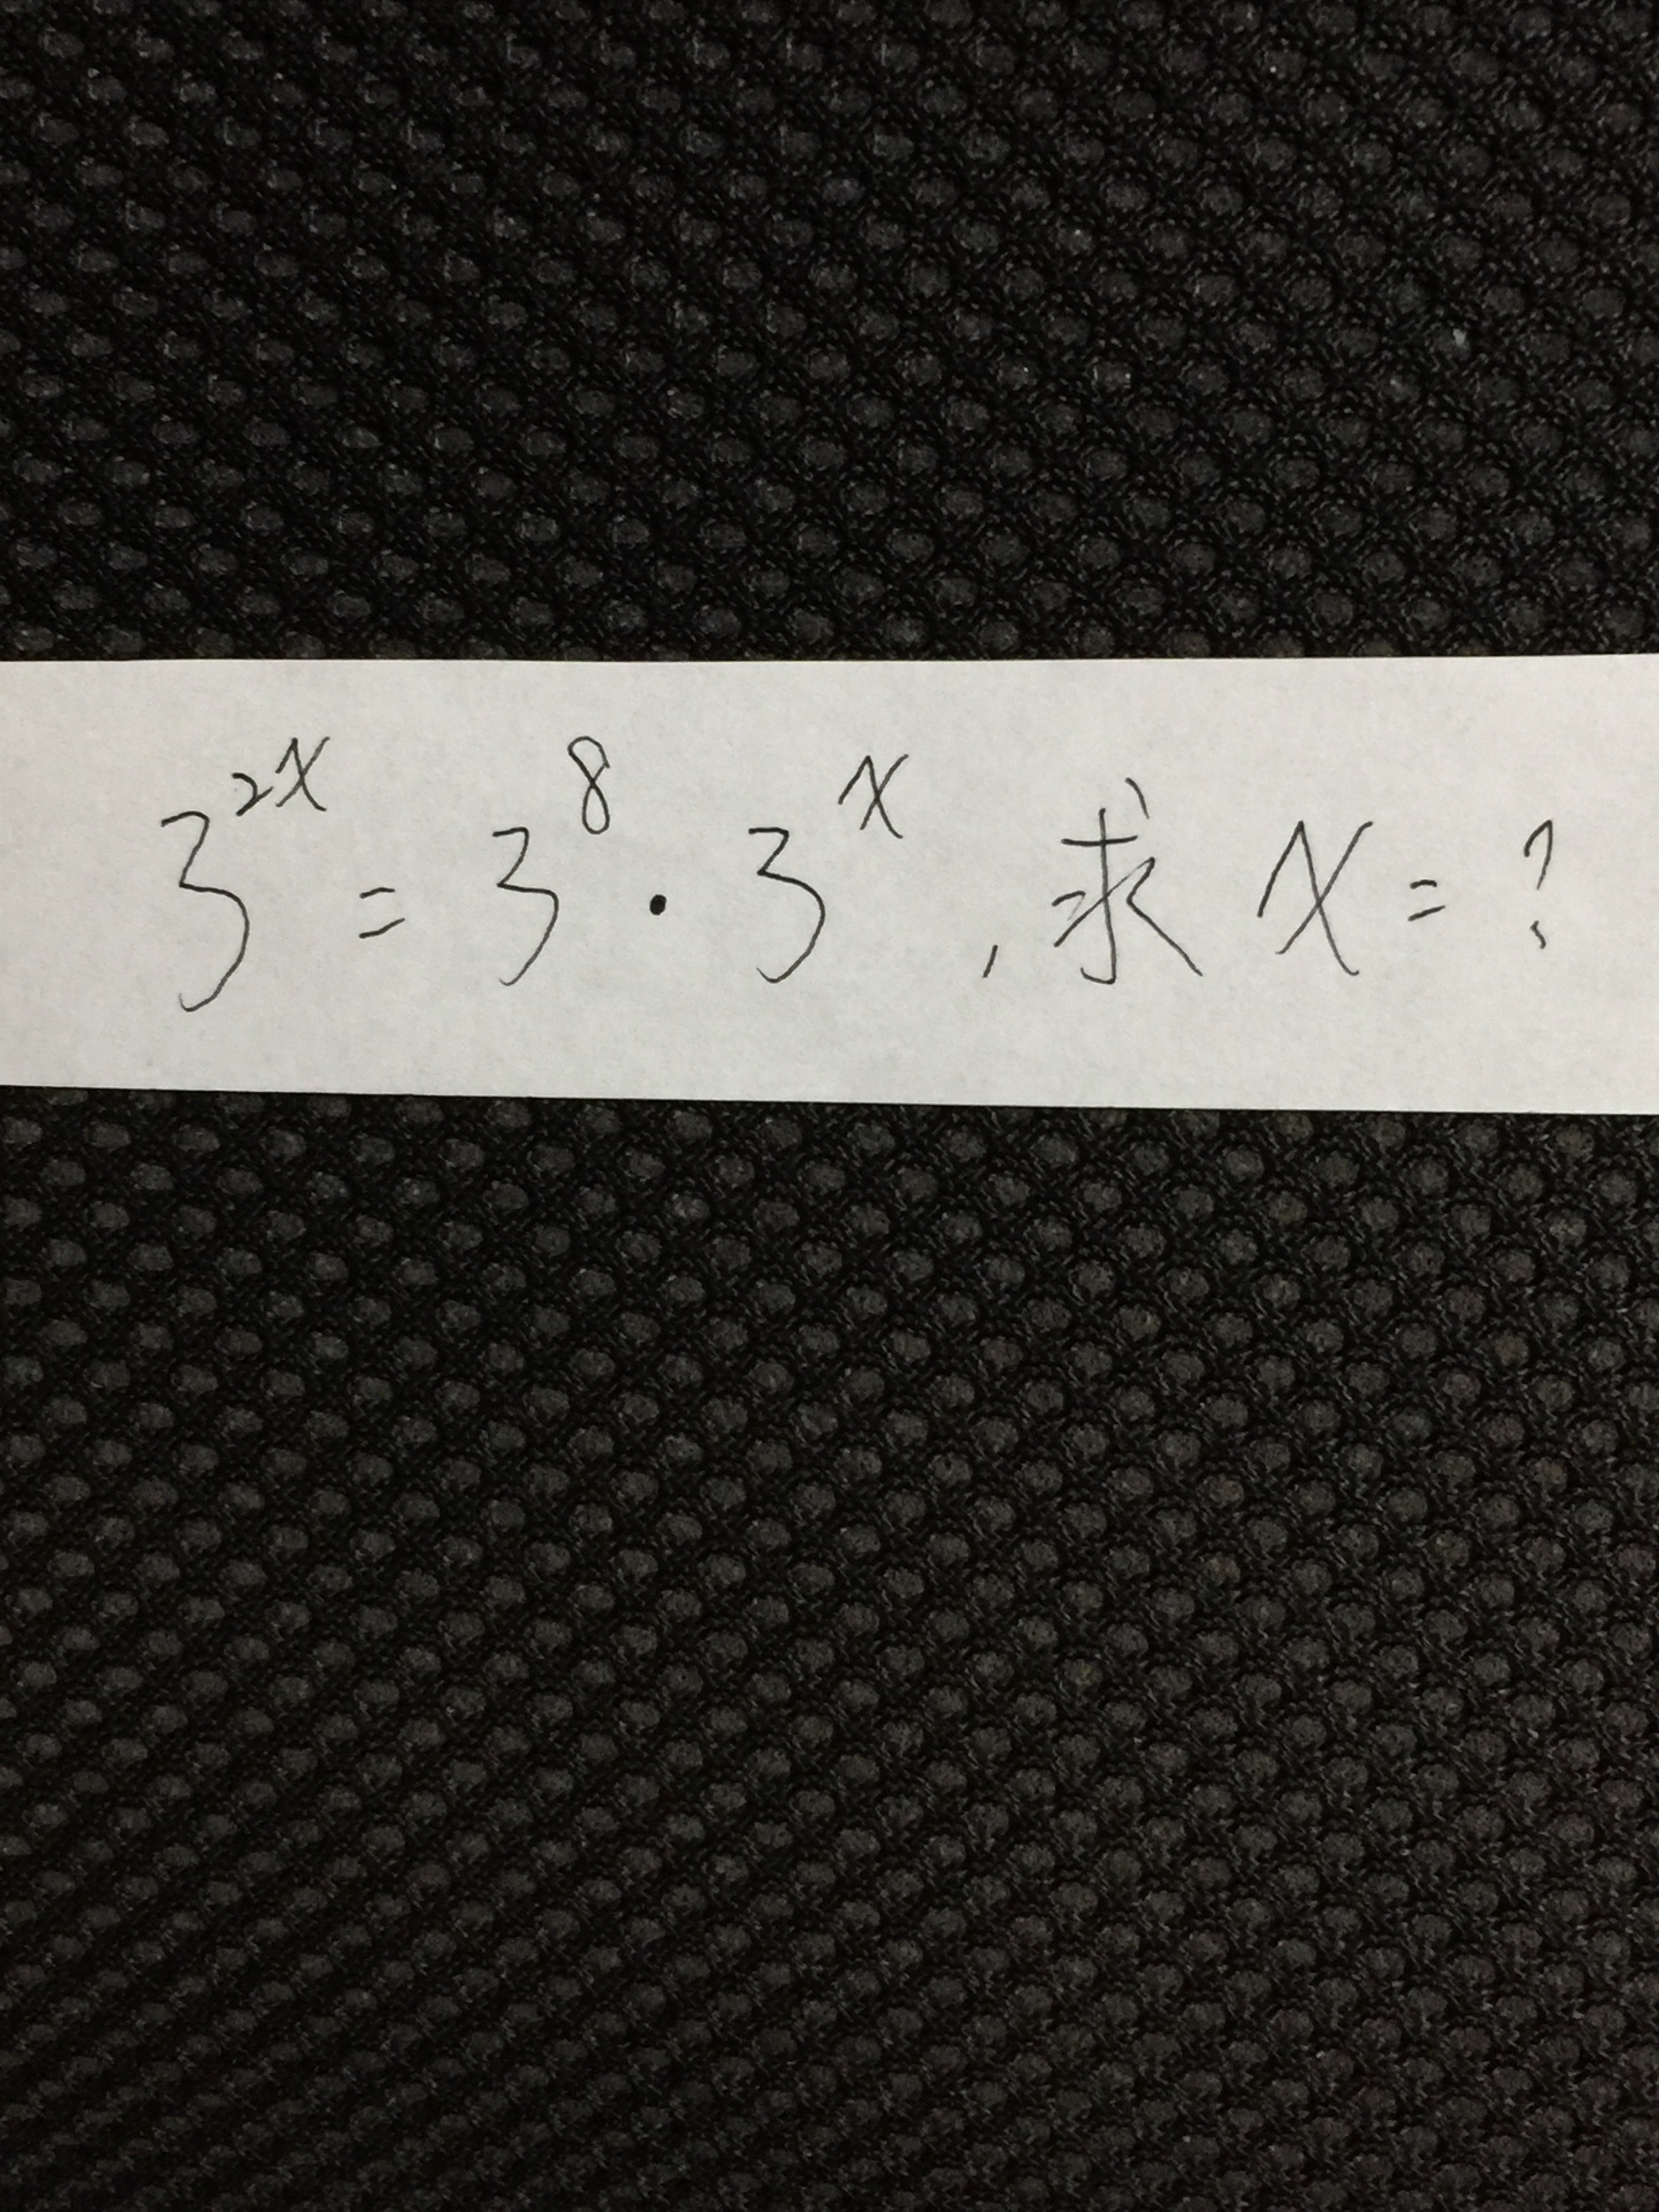 3^{2x} = 3^8 · 3^x , 求 x = ?